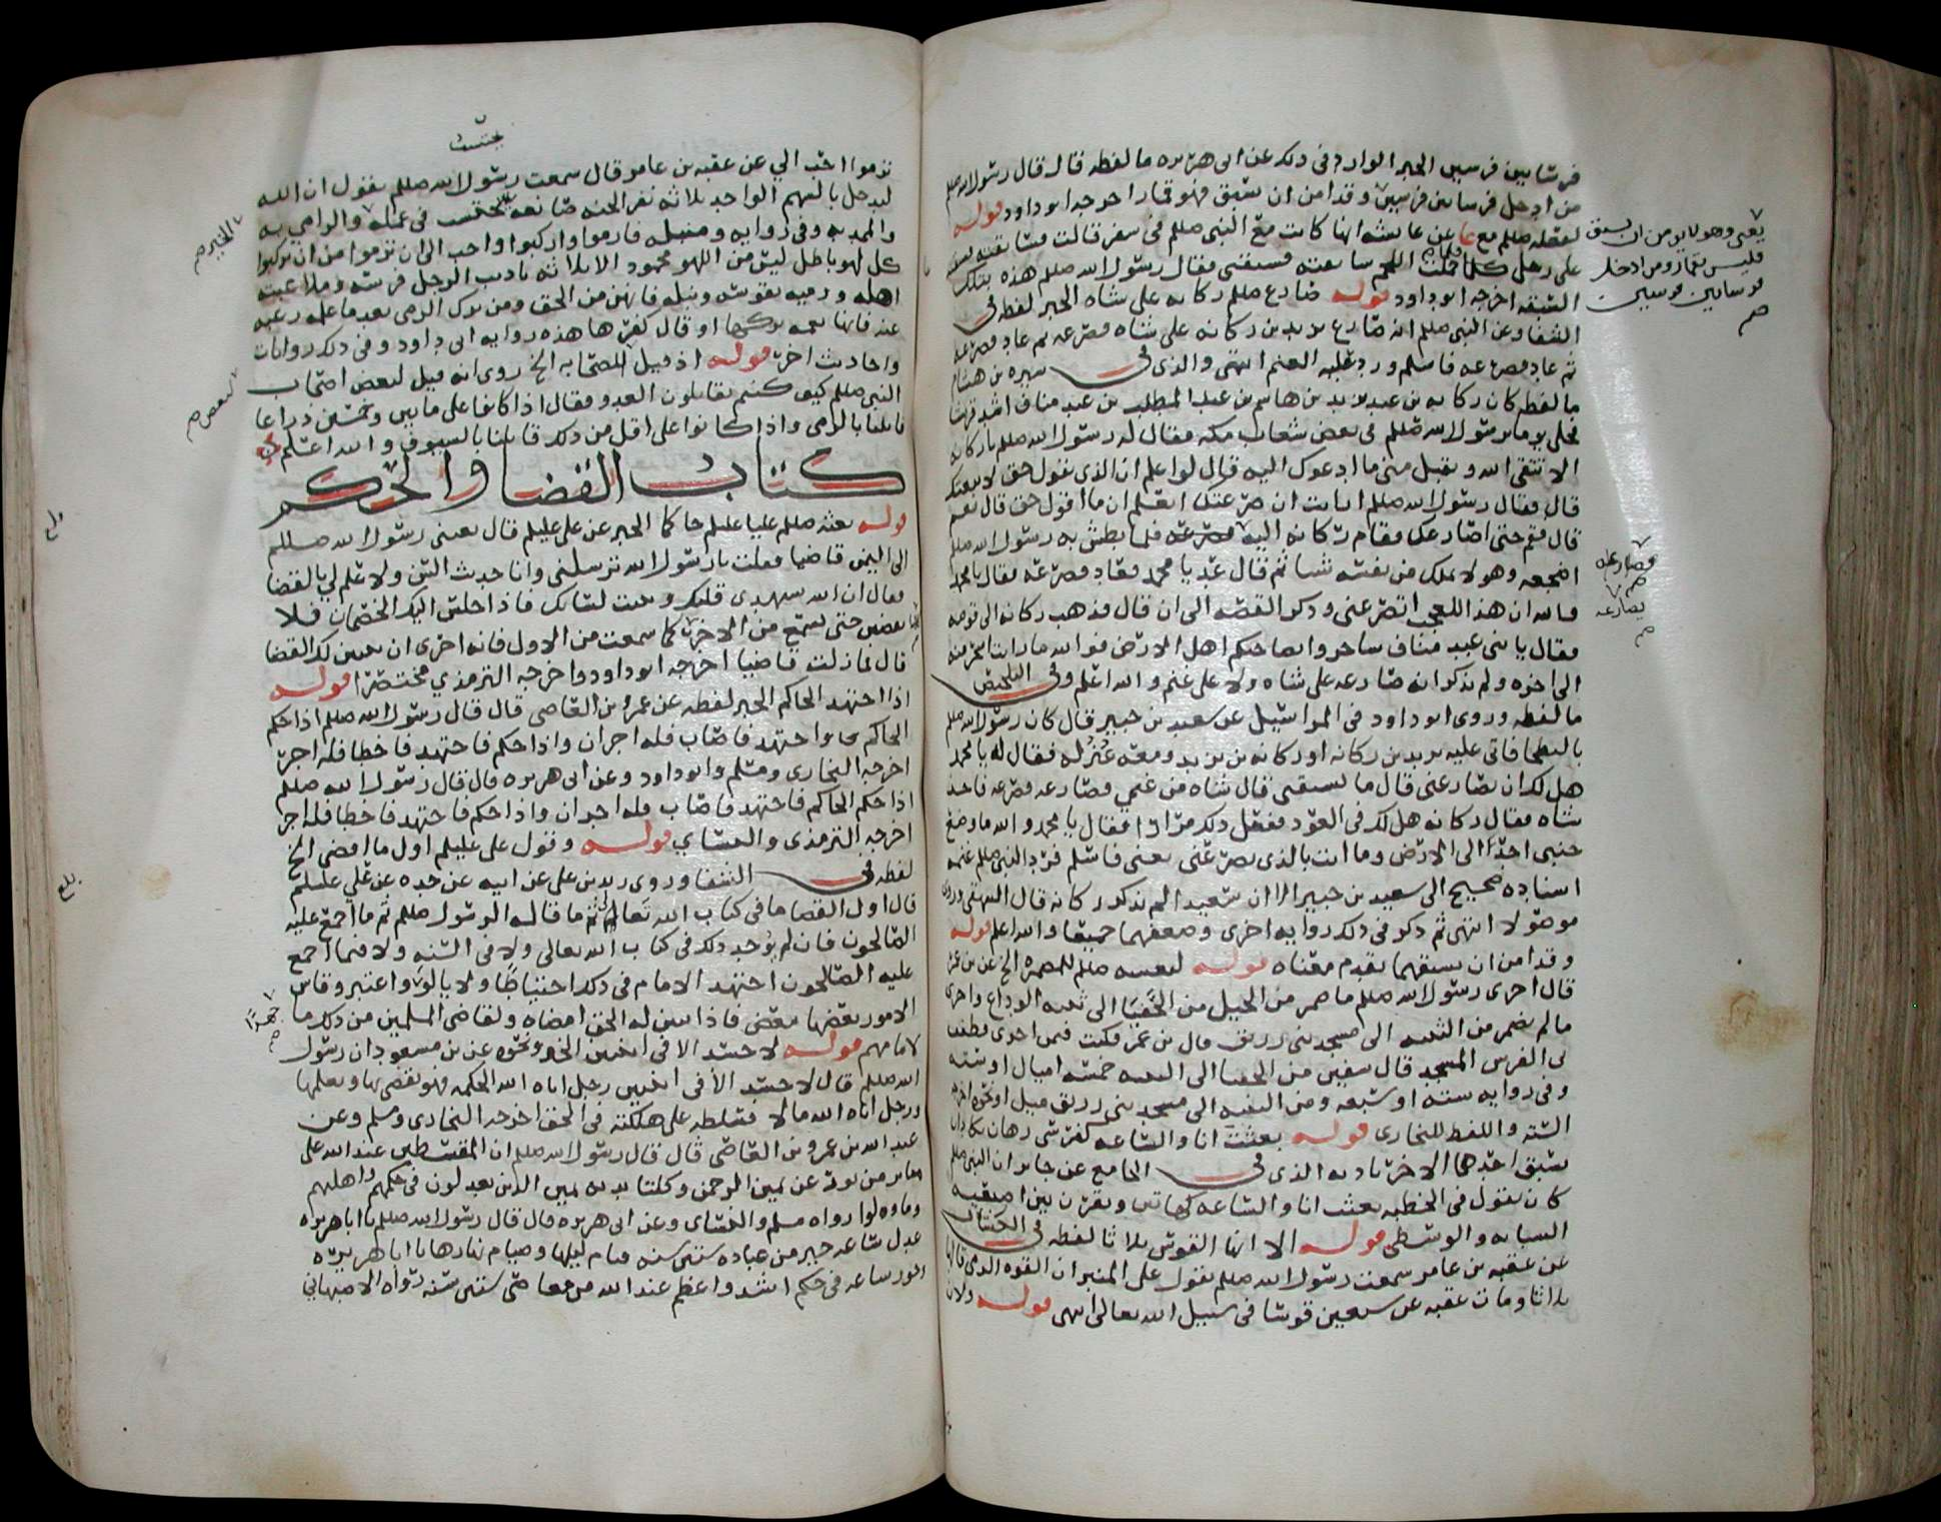 فرسا بين فرسين الخبر الوارد في ذلك عن ابي هريره ما لفظه قال قال رسول الله صللم
من ادخل فرسا بين فرسين وقد امن ان يسبق فهو قمار اخرجه ابو داود قوله
لفعله صللم مع عا عن عايشه انها كانت مع النبي صللم في سفر قالت فسابقته فسبقته
على رجلي فلما حملت اللحم سابقته فسبقني فقال رسول الله صللم هذه بتلك
السبقه اخرجه ابو داود قوله صارع صللم ركانه على شاه الخبر لفظه في
الشفا وعن النبي صللم انه صارع يزيد بن ركانه على شاه فصرعه ثم عاد فصرعه
ثم عاد فصرعه فاسلم ورد عليه الغنم انتهى والذي في سيره بن هشام
ما لفظه كان ركانه بن عبد يزيد بن هاشم بن عبد المطلب بن عبد مناف اشد قريش
فخلى يوما برسول الله صللم في بعض شعاب مكه فقال له رسول الله صللم يا ركانه
الا تتقي الله وتقبل مني ما ادعوك اليه قال لو اعلم ان الذي تقول حق لاتبعتك
قال فقال رسول الله صللم ارايت ان صرعتك اتعلم ان ما اقول حق قال نعم
قال فقم حتى اصارعك فقام ركانه اليه فصرعه فلما بطش به رسول الله صللم
اضجعه وهو لا يملك من نفسه شيا ثم قال عد يا محمد فعاد فصرعه فقال يا محمد
والله ان هذا للعجب اتصرعني وذكر القصه الى ان قال فذهب ركانه الى قومه
فقال يا بني عبد مناف ساحروا بصاحبكم اهل الارض فوالله ما رايت اسحر منه
الى اخره ولم يذكر انه صارعه على شاه ولا على غنم والله اعلم وفي التلخيص
ما لفظه وروى ابو داود في المراسيل عن سعيد بن جبير قال كان رسول الله صللم
بالبطحا فاتى عليه يزيد بن ركانه او ركانه بن يزيد ومعه عنز له فقال له يا محمد
هل لك ان تصارعني قال ما تسبقني قال شاه من غنمي فصارعه فصرعه فاخذ
شاه فقال ركانه هل لك في العود ففعل ذلك مرارا فقال يا محمد والله ما وضع
جنبي احد الى الارض وما انت بالذي تصرعني يعني فاسلم فرد النبي صللم غنمه
اسناده صحيح الى سعيد بن جبير الا ان سعيدا لم يدرك ركانه قال البيهقي وروى
موصولا انتهى ثم ذكر في ذلك روايه اخرى وضعفهما جميعا والله اعلم قوله
وقد امن ان يسبقهما تقدم معناه قوله لنفسه صللم للمضمره الخ عن بن عمر
قال اجرى رسول الله صللم ما ضمر من الخيل من الحفيا الى ثنيه الوداع واجرى
ما لم يضمر من الثنيه الى مسجد بني زريق قال بن عمر فكنت فيمن اجرى فطفف
بي الفرس المسجد قال سفين من الحفيا الى الثنيه خمسه اميال او سته
وفي روايه سته او سبعه ومن الثنيه الى مسجد بني زريق ميل او نحوه اخرجه
السته واللفظ للبخاري قوله بعثت انا والساعه كفرسي رهان كاد ان
يسبق احدهما الاخر باذنه الذي في الجامع عن جابر ان النبي صللم
كان يقول في الخطبه بعثت انا والساعه كهاتين ويقرن بين اصبعيه
السبابه والوسطى قوله الا انها القوس ثلاثا لفظه في الكشاف
عن عقبه بن عامر سمعت رسول الله صللم يقول على المنبر ان القوه الرمي قالها
ثلاثا ومات عقبه عن سبعين قوسا في سبيل الله تعالى انتهى قوله ولان
يعني وهو لا يومن ان يسبق
فليس بقمار ومن ادخل
فرسا بين فرسين
صح
فصارعه
صح
يصارعه
صح
ترموا احب الي عن عقبه بن عامر قال سمعت رسول الله صللم يقول ان الله
ليدخل بالسهم الواحد ثلاثه نفر الجنه صانعه يحتسب في عمله والرامي به
والممد به وفي روايه ومنبله فارموا واركبوا واحب الي ان ترموا من ان تركبوا
كل لهو باطل ليس من اللهو محمود الا ثلاثه تاديب الرجل فرسه وملاعبته
اهله ورميه بقوسه ونبله فانهن من الحق ومن ترك الرمي بعد ما علمه رغبه
عنه فانها نعمه تركها او قال كفرها هذه روايه ابي داود وفي ذلك روايات
واحاديث اخر قوله اذ قيل للصحابه الخ روي انه قيل لبعض اصحاب
النبي صللم كيف كنتم تقاتلون العدو فقال اذا كانوا على مايتين وخمسين ذراعا
قاتلنا بالرمي واذا كانوا على اقل من ذلك قاتلنا بالسيوف والله اعلم
كتاب القضا والحكم
قوله بعثه صللم عليا عليلم حاكما الخبر عن علي عليلم قال بعثني رسول الله صللم
الى اليمن قاضيا فقلت يا رسول الله ترسلني وانا حديث السن ولا علم لي بالقضا
فقال ان الله سيهدي قلبك ويثبت لسانك فاذا جلس اليك الخصمان فلا
تقضين حتى تسمع من الاخر كما سمعت من الاول فانه احرى ان يتبين لك القضا
قال فما زلت قاضيا اخرجه ابو داود واخرجه الترمذي مختصرا قوله
اذا اجتهد الحاكم الخبر لفظه عن عمرو بن العاصي قال قال رسول الله صللم اذا حكم
الحاكم فاجتهد فاصاب فله اجران واذا حكم فاجتهد فاخطا فله اجر
اخرجه البخاري ومسلم وابو داود وعن ابي هريره قال قال رسول الله صللم
اذا حكم الحاكم فاجتهد فاصاب فله اجران واذا حكم فاجتهد فاخطا فله اجر
اخرجه الترمذي والنساي قوله وقول علي عليلم اول ما اقضي الخ
لفظه في الشفا وروى زيد بن علي عن ابيه عن جده عن علي عليلم
قال اول القضا ما في كتاب الله تعالى ثم ما قاله الرسول صللم ثم ما اجمع عليه
الصالحون فان لم يوجد ذلك في كتاب الله تعالى ولا في السنه ولا فيما اجمع
عليه الصالحون اجتهد الامام في ذلك احتياطا ولا يالوا واعتبر وقاس
الامور بعضها ببعض فاذا تبين له الحق امضاه ولقاضي المسلمين من ذلك ما
لامامهم قوله لا حسد الا في اثنين الخ ونحوه عن بن مسعود ان رسول
الله صللم قال لا حسد الا في اثنين رجل اتاه الله الحكمه فهو يقضي بها ويعلمها
ورجل اتاه الله مالا فسلطه على هلكته في الحق اخرجه البخاري ومسلم وعن
عبد الله بن عمرو بن العاصي قال قال رسول الله صللم ان المقسطين عند الله على
منابر من نور عن يمين الرحمن وكلتا يديه يمين الذين يعدلون في حكمهم واهليهم
وما ولوا رواه مسلم والنساي وعن ابي هريره قال قال رسول الله صللم يا ابا هريره
عدل ساعه خير من عباده ستين سنه قيام ليلها وصيام نهارها يا ابا هريره
جور ساعه في حكم اشد واعظم عند الله من معاصي ستين سنه رواه الاصبهاني
الخير صح
لبعض صح
بلغ
جهدا
صح